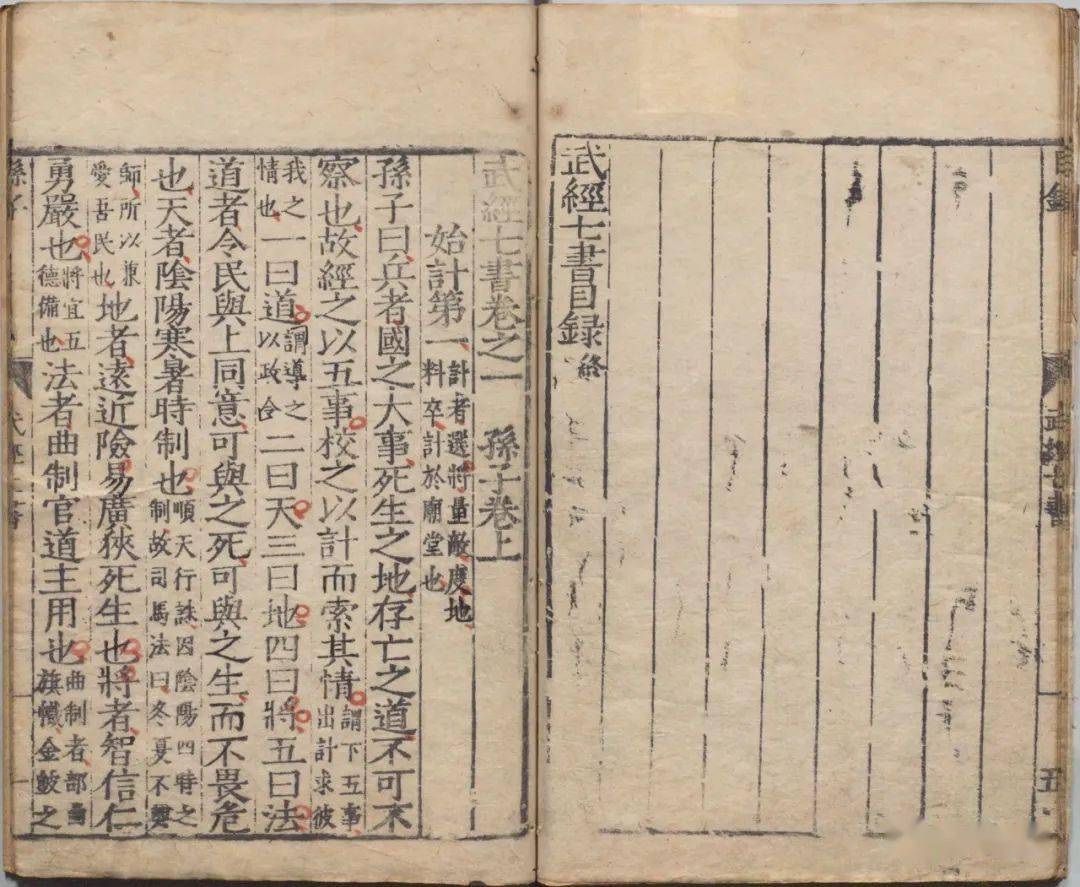 目錄 武經七書 五
武經七書目録 終
武經七書卷之一 孫子卷上
始計第一 計者選將量敵度地料卒計於廟堂也
孫子曰兵者國之大事死生之地存亡之道不可不
察也故經之以五事校之以計而索其情謂下五事出計求彼
我之情也一曰道謂導之以政令二曰天三曰地四曰將五曰法
道者令民與上同意可與之死可與之生而不畏危
也天者陰陽寒暑時制也順天行誅因陰陽四時之制故司馬法曰冬夏不興
師所以兼愛吾民也地者遠近險易廣狹死生也將者智信仁
勇嚴也將宜五德備也法者曲制官道主用也曲制者部曲旗幟金鼓之
孫子